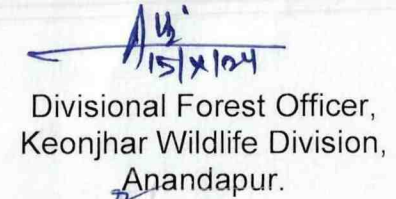 15/X/24
Divisional Forest Officer,
Keonjhar Wildlife Division,
Anandapur.